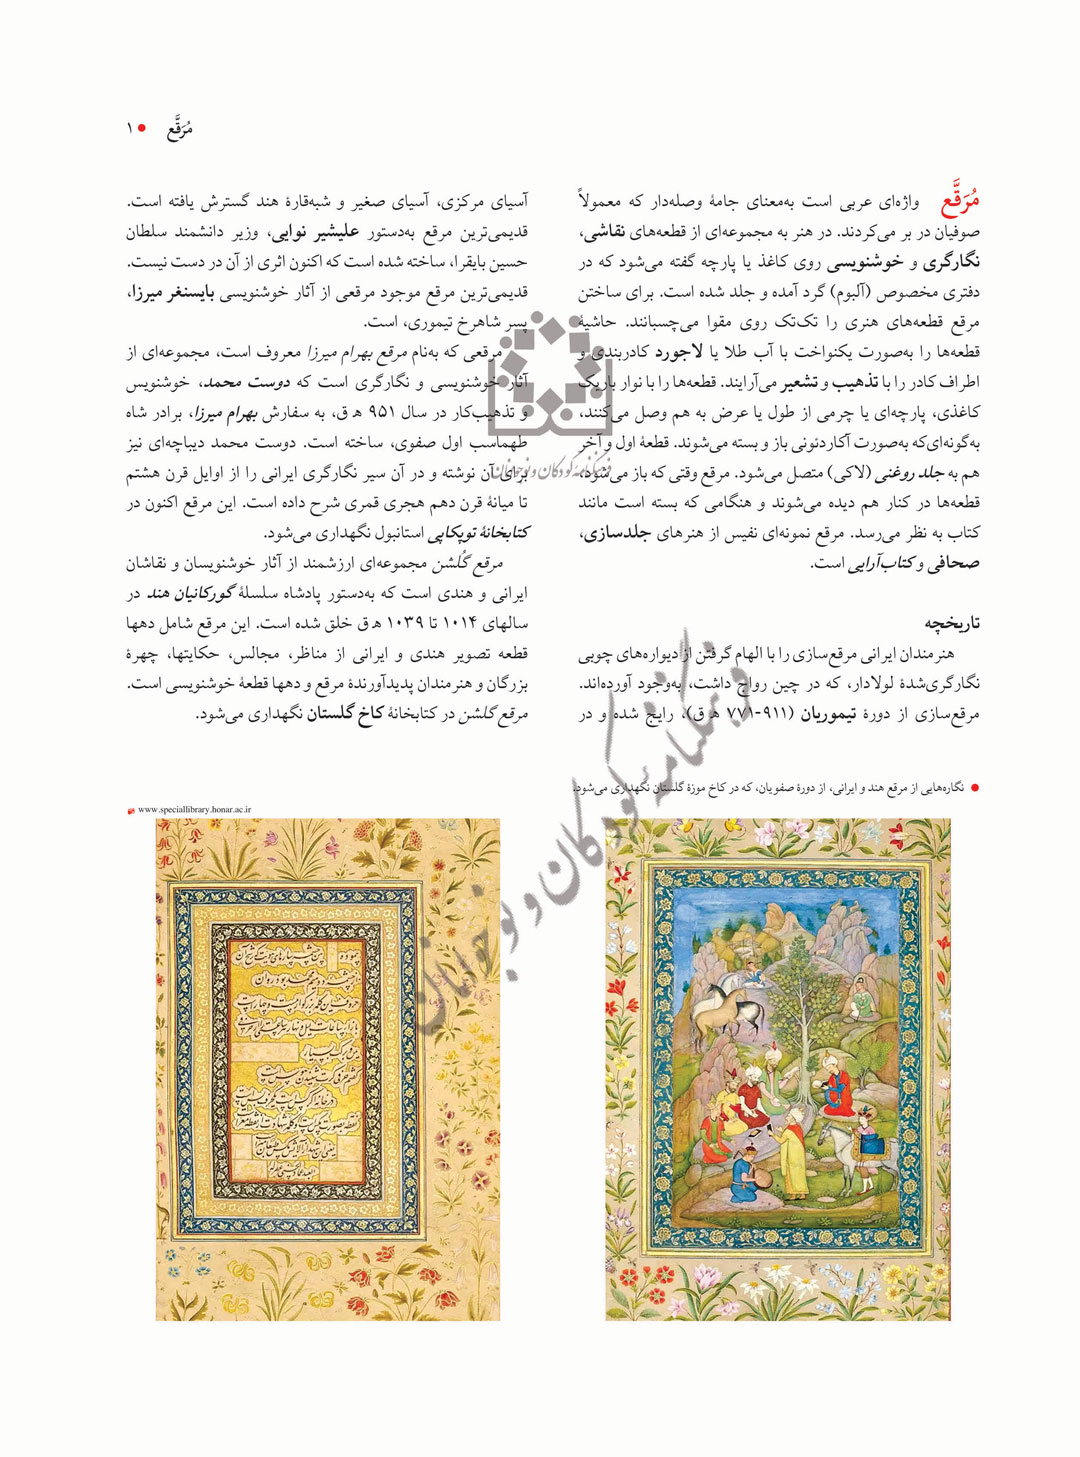 مُرَقَّع ● ۱
مُرَقَّع واژه‌ای عربی است به‌معنای جامهٔ وصله‌دار که معمولاً
صوفیان در بر می‌کردند. در هنر به مجموعه‌ای از قطعه‌های نقاشی،
نگارگری و خوشنویسی روی کاغذ یا پارچه گفته می‌شود که در
دفتری مخصوص (آلبوم) گرد آمده و جلد شده است. برای ساختن
مرقع قطعه‌های هنری را تک‌تک روی مقوا می‌چسبانند. حاشیهٔ
قطعه‌ها را به‌صورت یکنواخت با آب طلا یا لاجورد کادربندی و
اطراف کادر را با تذهیب و تشعیر می‌آرایند. قطعه‌ها را با نوار باریک
کاغذی، پارچه‌ای یا چرمی از طول یا عرض به هم وصل می‌کنند،
به‌گونه‌ای‌که به‌صورت آکاردئونی باز و بسته می‌شوند. قطعهٔ اول و آخر
هم به جلد روغنی (لاکی) متصل می‌شود. مرقع وقتی که باز می‌شود،
قطعه‌ها در کنار هم دیده می‌شوند و هنگامی که بسته است مانند
کتاب به نظر می‌رسد. مرقع نمونه‌ای نفیس از هنرهای جلدسازی،
صحافی و کتاب‌آرایی است.
تاریخچه
هنرمندان ایرانی مرقع‌سازی را با الهام گرفتن از دیواره‌های چوبی
نگارگری‌شدهٔ لولادار، که در چین رواج داشت، به‌وجود آورده‌اند.
مرقع‌سازی از دورهٔ تیموریان (۹۱۱-۷۷۱ ه‍ ق)، رایج شده و در
آسیای مرکزی، آسیای صغیر و شبه‌قارهٔ هند گسترش یافته است.
قدیمی‌ترین مرقع به‌دستور علیشیر نوایی، وزیر دانشمند سلطان
حسین بایقرا، ساخته شده است که اکنون اثری از آن در دست نیست.
قدیمی‌ترین مرقع موجود مرقعی از آثار خوشنویسی بایسنغر میرزا،
پسر شاهرخ تیموری، است.
مرقعی که به‌نام مرقع بهرام میرزا معروف است، مجموعه‌ای از
آثار خوشنویسی و نگارگری است که دوست محمد، خوشنویس
و تذهیب‌کار در سال ۹۵۱ ه‍ ق، به سفارش بهرام میرزا، برادر شاه
طهماسب اول صفوی، ساخته است. دوست محمد دیباچه‌ای نیز
برای آن نوشته و در آن سیر نگارگری ایرانی را از اوایل قرن هشتم
تا میانهٔ قرن دهم هجری قمری شرح داده است. این مرقع اکنون در
کتابخانهٔ توپکاپی استانبول نگهداری می‌شود.
مرقع گُلشن مجموعه‌ای ارزشمند از آثار خوشنویسان و نقاشان
ایرانی و هندی است که به‌دستور پادشاه سلسلهٔ گورکانیان هند در
سالهای ۱۰۱۴ تا ۱۰۳۹ ه‍ ق خلق شده است. این مرقع شامل دهها
قطعه تصویر هندی و ایرانی از مناظر، مجالس، حکایتها، چهرهٔ
بزرگان و هنرمندان پدیدآورندهٔ مرقع و دهها قطعهٔ خوشنویسی است.
مرقع گلشن در کتابخانهٔ کاخ گلستان نگهداری می‌شود.
فرهنگنامه کودکان و نوجوانان
فرهنگنامه کودکان و نوجوانان
● نگاره‌هایی از مرقع هند و ایرانی، از دورهٔ صفویان، که در کاخ موزهٔ گلستان نگهداری می‌شود.
www.speciallibrary.honar.ac.ir